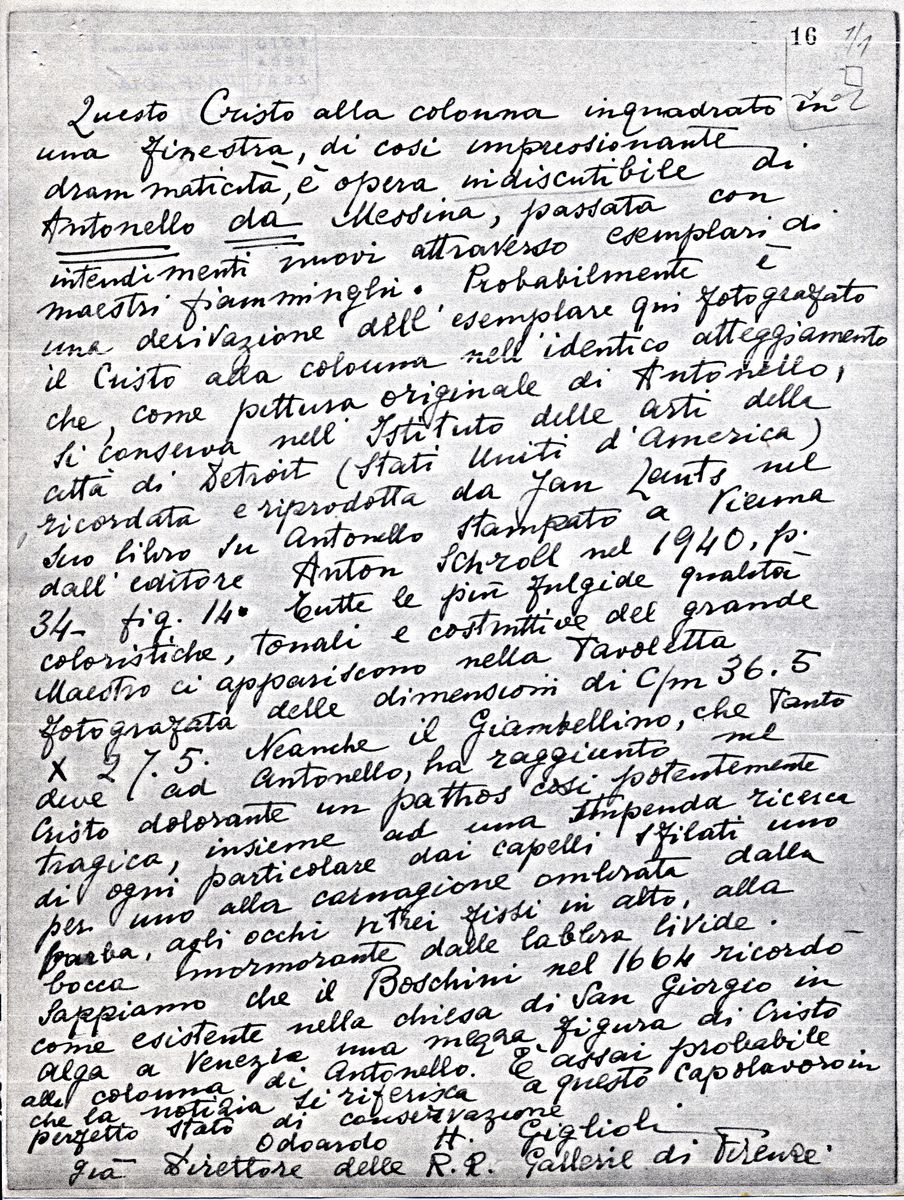 16 1/1
Questo Cristo alla colonna inquadrato in
una finestra, di così impressionante
drammaticità, è opera indiscutibile di
Antonello da Messina, passata con
intendimenti nuovi attraverso esemplari di
maestri fiamminghi. Probabilmente è
una derivazione dell'esemplare qui fotografato
il Cristo alla colonna nell'identico atteggiamento
che, come pittura originale di Antonello,
si conserva nell'Istituto delle arti della
città di Detroit (Stati Uniti d'America)
ricordata e riprodotta da Jan Lauts nel
suo libro su Antonello stampato a Vienna
dall'editore Anton Schroll nel 1940, p.
34- fig. 14. Tutte le più fulgide qualità
coloristiche, tonali e costruttive del grande
Maestro ci appariscono nella Tavoletta
fotografata delle dimensioni di C/m 36.5
x 27.5. Neanche il Giambellino, che Tanto
deve ad Antonello, ha raggiunto nel
Cristo dolorante un pathos così potentemente
tragica, insieme ad una stupenda ricerca
di ogni particolare dai capelli sfilati uno
per uno alla carnagione ombrata dalla
barba, agli occhi vitrei fissi in alto, alla
bocca mormorante dalle labbra livide.
Sappiamo che il Boschini nel 1664 ricordò
come esistente nella chiesa di San Giorgio in
alga a Venezia una mezza figura di Cristo
alla colonna di Antonello. È assai probabile
che la notizia si riferisca a questo capolavoro in
perfetto stato di conservazione
Odoardo H. Giglioli
già Direttore delle R.R. Gallerie di Firenze.